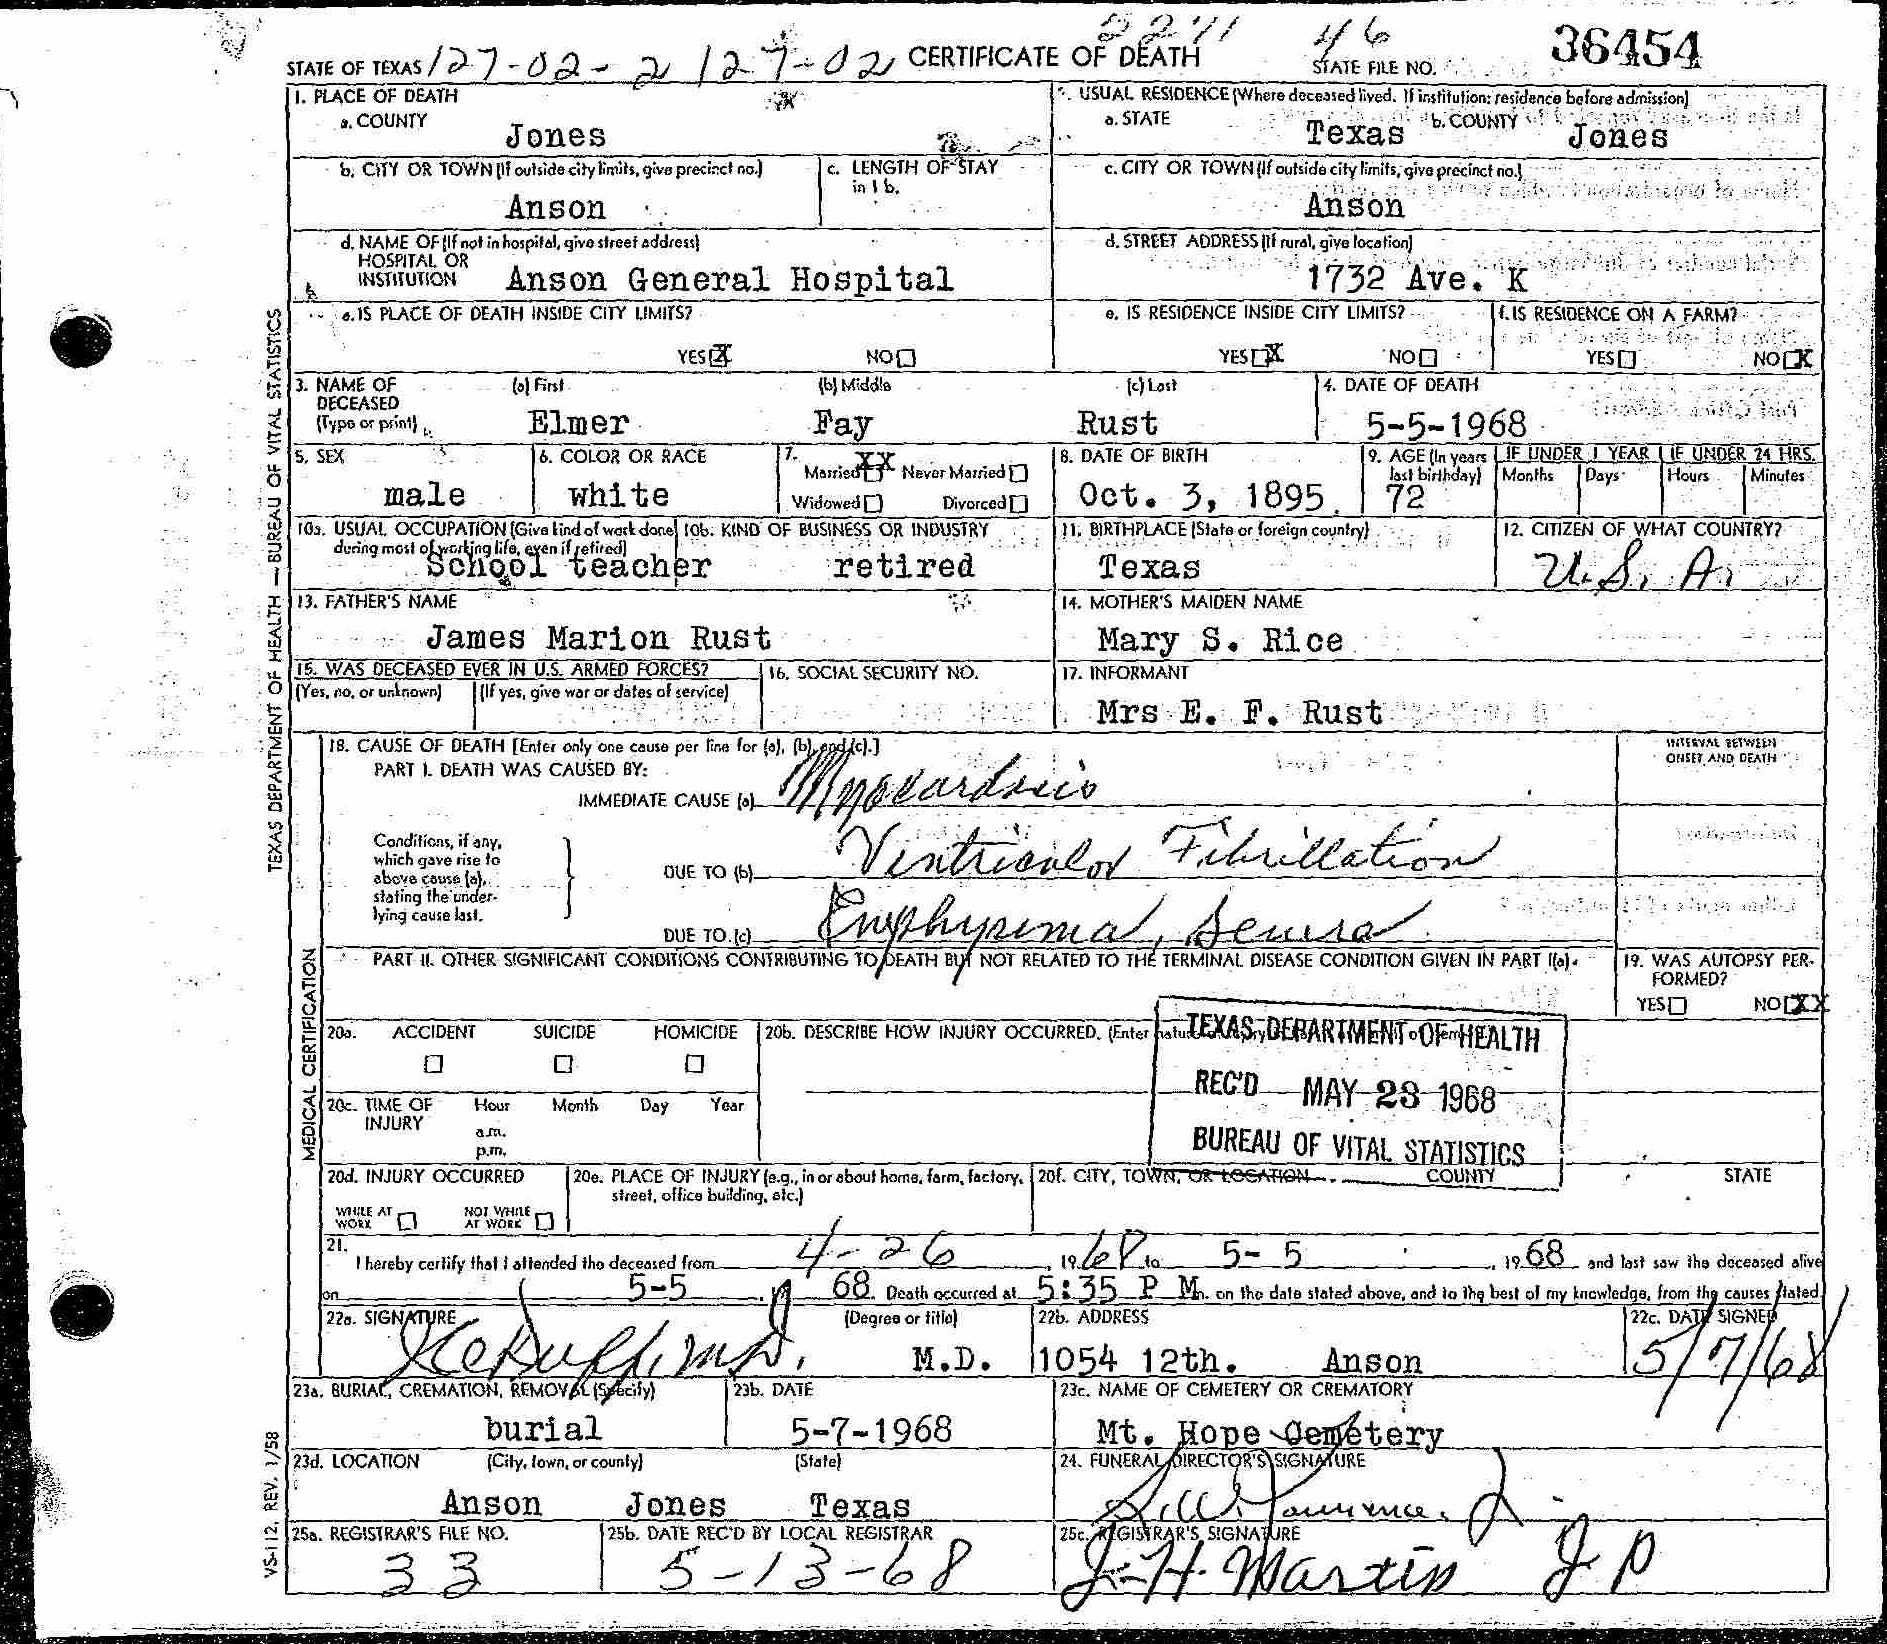 2211 46 36454
STATE OF TEXAS 127-02-2 127-02 CERTIFICATE OF DEATH STATE FILE NO.
1. PLACE OF DEATH
a. COUNTY
Jones
USUAL RESIDENCE (Where deceased lived. If institution: residence before admission)
a. STATE Texas b. COUNTY Jones
b. CITY OR TOWN (If outside city limits, give precinct no.)
Anson
c. LENGTH OF STAY
in 1 b.
c. CITY OR TOWN (If outside city limits, give precinct no.)
Anson
d. NAME OF (If not in hospital, give street address)
HOSPITAL OR
INSTITUTION Anson General Hospital
d. STREET ADDRESS (If rural, give location)
1732 Ave. K
e. IS PLACE OF DEATH INSIDE CITY LIMITS?
YES X NO
e. IS RESIDENCE INSIDE CITY LIMITS?
YES X NO
f. IS RESIDENCE ON A FARM?
YES NO X
3. NAME OF
DECEASED
(Type or print)
(a) First (b) Middle (c) Last
Elmer Fay Rust
4. DATE OF DEATH
5-5-1968
5. SEX
male
6. COLOR OR RACE
white
7.
Married XX Never Married
Widowed Divorced
8. DATE OF BIRTH
Oct. 3, 1895
9. AGE (In years
last birthday)
72
IF UNDER 1 YEAR IF UNDER 24 HRS.
Months Days Hours Minutes
10a. USUAL OCCUPATION (Give kind of work done
during most of working life, even if retired)
School teacher
10b. KIND OF BUSINESS OR INDUSTRY
retired
11. BIRTHPLACE (State or foreign country)
Texas
12. CITIZEN OF WHAT COUNTRY?
U. S. A.
13. FATHER'S NAME
James Marion Rust
14. MOTHER'S MAIDEN NAME
Mary S. Rice
15. WAS DECEASED EVER IN U.S. ARMED FORCES?
(Yes, no, or unknown) (If yes, give war or dates of service)
16. SOCIAL SECURITY NO.
17. INFORMANT
Mrs E. F. Rust
18. CAUSE OF DEATH [Enter only one cause per line for (a), (b), and (c).]
INTERVAL BETWEEN
ONSET AND DEATH
PART I. DEATH WAS CAUSED BY:
IMMEDIATE CAUSE (a)
Conditions, if any,
which gave rise to
above cause (a),
stating the under-
lying cause last.
DUE TO (b) Ventricular Fibrillation
DUE TO (c) Emphysema,
PART II. OTHER SIGNIFICANT CONDITIONS CONTRIBUTING TO DEATH BUT NOT RELATED TO THE TERMINAL DISEASE CONDITION GIVEN IN PART I(a).
19. WAS AUTOPSY PER-
FORMED?
YES NO XX
20a. ACCIDENT SUICIDE HOMICIDE
20b. DESCRIBE HOW INJURY OCCURRED. (Enter
TEXAS DEPARTMENT OF HEALTH
REC'D MAY 23 1968
BUREAU OF VITAL STATISTICS
20c. TIME OF
INJURY
Hour Month Day Year
a.m.
p.m.
20d. INJURY OCCURRED
WHILE AT
WORK
NOT WHILE
AT WORK
20e. PLACE OF INJURY (e.g., in or about home, farm, factory,
street, office building, etc.)
20f. CITY, TOWN, OR LOCATION COUNTY STATE
21.
I hereby certify that I attended the deceased from 4-26, 1968 to 5-5, 1968 and last saw the deceased alive
on 5-5, 68. Death occurred at 5:35 P M. on the date stated above, and to the best of my knowledge, from the causes stated.
22a. SIGNATURE (Degree or title)
M.D. M.D.
22b. ADDRESS
1054 12th. Anson
22c. DATE SIGNED
5/7/68
23a. BURIAL, CREMATION, REMOVAL (Specify)
burial
23b. DATE
5-7-1968
23c. NAME OF CEMETERY OR CREMATORY
Mt. Hope Cemetery
23d. LOCATION (City, town, or county) (State)
Anson Jones Texas
24. FUNERAL DIRECTOR'S SIGNATURE
25a. REGISTRAR'S FILE NO.
33
25b. DATE REC'D BY LOCAL REGISTRAR
5-13-68
25c. REGISTRAR'S SIGNATURE
J. H. Martin J P
TEXAS DEPARTMENT OF HEALTH — BUREAU OF VITAL STATISTICS
MEDICAL CERTIFICATION
VS-112, REV. 1/58